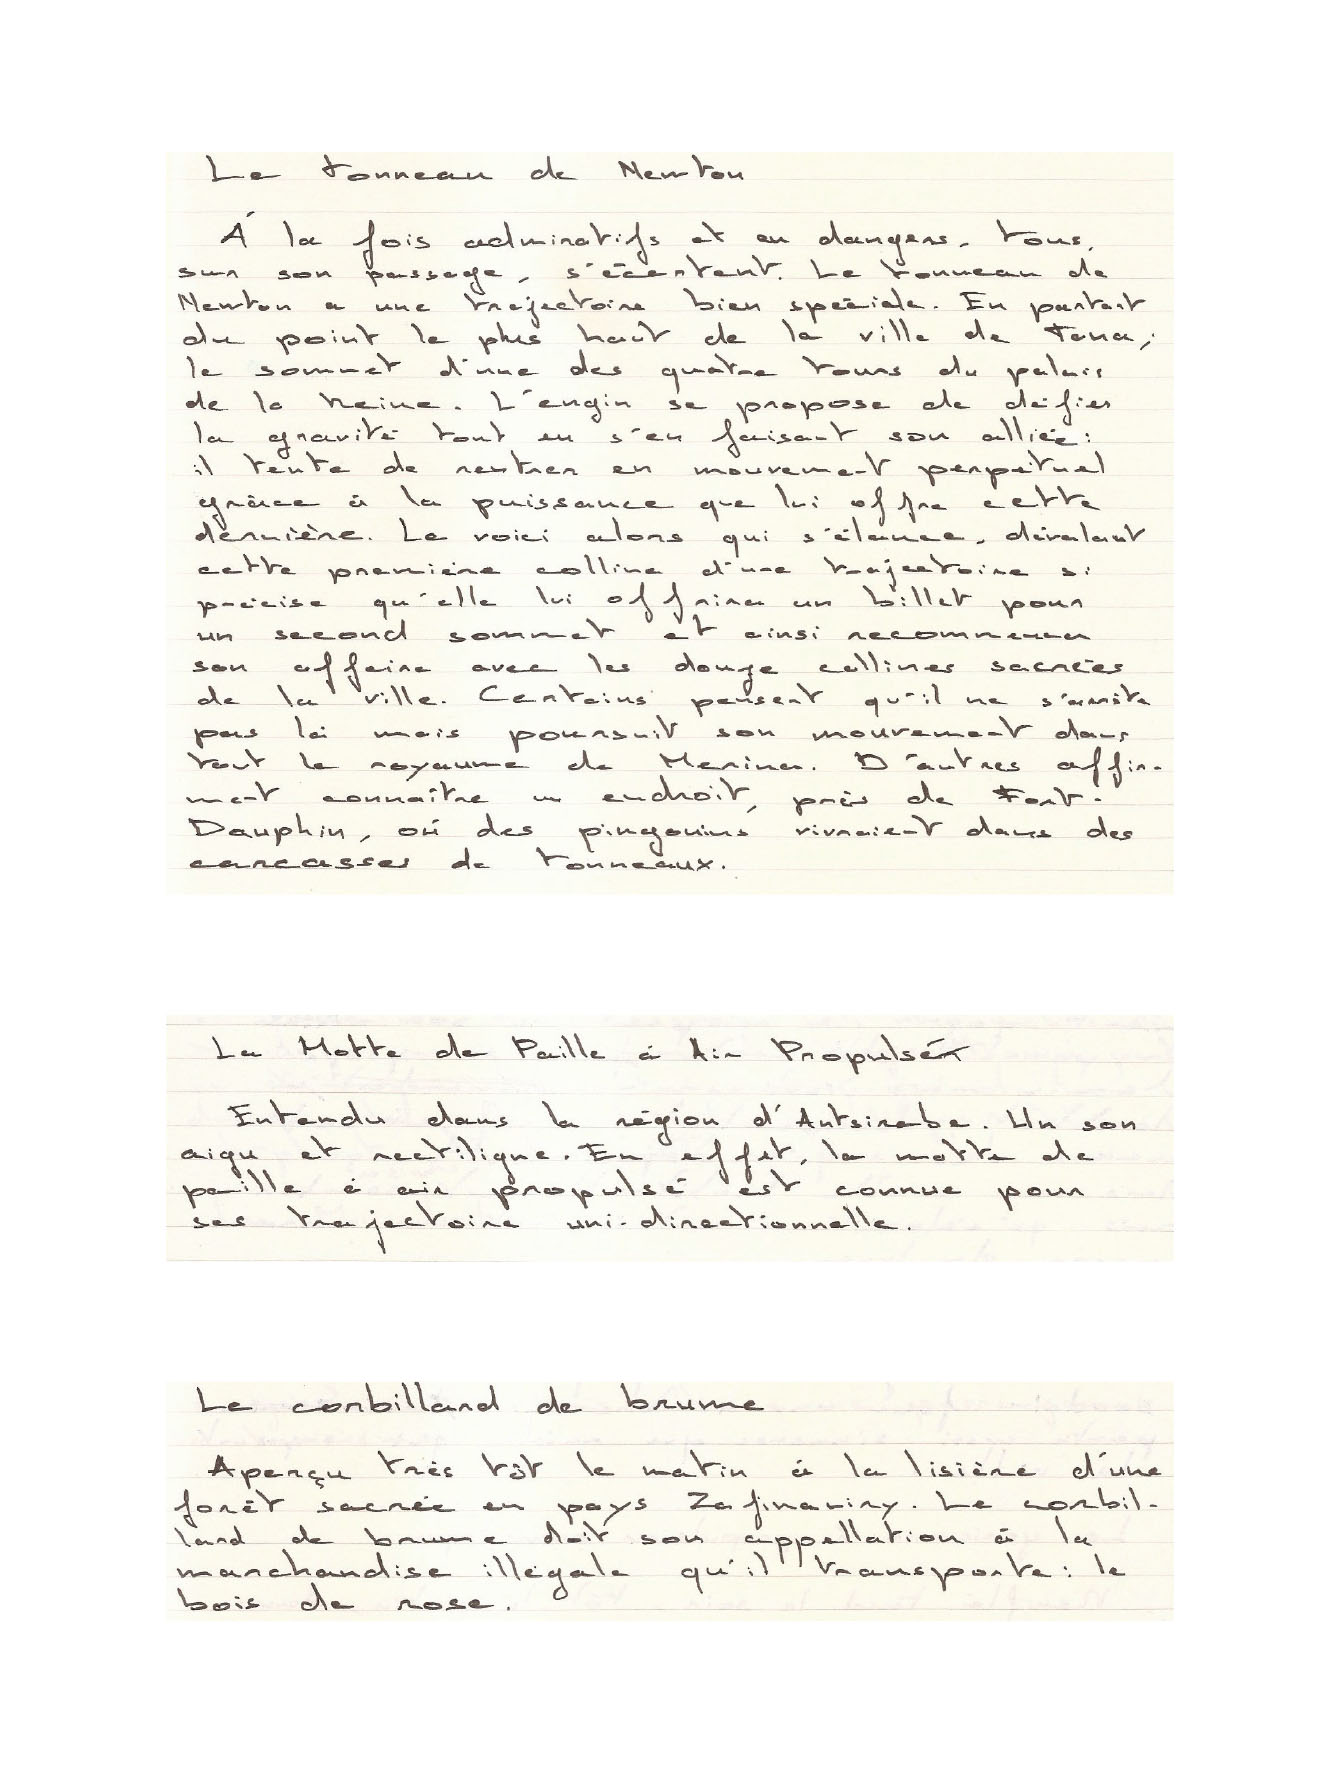 Le tonneau de Newton
À la fois admiratifs et en dangers, tous,
sur son passage, s'écartent. Le tonneau de
Newton a une trajectoire bien spéciale. En partant
du point le plus haut de la ville de Tana,
le sommet d'une des quatre tours du palais
de la Reine. L'engin se propose de défier
la gravité tout en s'en faisant son alliée:
il tente de rentrer en mouvement perpétuel
grâce à la puissance que lui offre cette
dernière. Le voici alors qui s'élance, dévalant
cette première colline d'une trajectoire si
précise qu'elle lui offrira un billet pour
un second sommet et ainsi recommencer
son affaire avec les douze collines sacrées
de la ville. Certains pensent qu'il ne s'arrête
pas là mais poursuit son mouvement dans
tout le royaume de Merina. D'autres affir-
ment connaître un endroit, près de Fort-
Dauphin, où des pingouins vivraient dans des
carcasses de tonneaux.
La Motte de Paille à Air Propulsé
Entendu dans la région d'Antsirabe. Un son
aigu et rectiligne. En effet, la motte de
paille à air propulsé est connue pour
ses trajectoire uni-directionnelle.
Le corbillard de brume
Aperçu très tôt le matin à la lisière d'une
forêt sacrée en pays Zafinaviry. Le corbil-
lard de brume doit son appellation à la
marchandise illégale qu'il transporte: le
bois de rose.